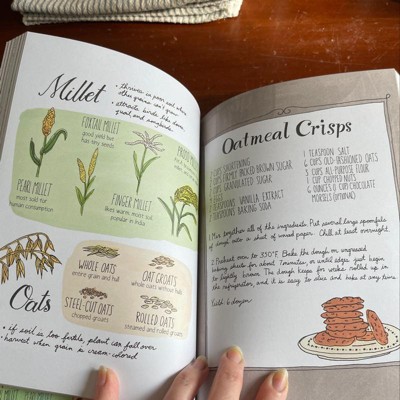 Millet
• thrives in poor soil where
other grains can't grow
• attracts birds like doves,
quail, and songbirds
FOXTAIL MILLET
good yield but
has tiny seeds
PEARL MILLET
most sold for
human consumption
FINGER MILLET
likes warm, moist soil,
popular in India
PROSO
Oats
WHOLE OATS
entire grain and hull
OAT GROATS
whole oats without hulls
STEEL-CUT OATS
chopped groats
ROLLED OATS
steamed and rolled groats
• if soil is too fertile, plant can fall over
• harvest when grain is cream-colored
Oatmeal Crisps
CUPS SHORTENING
CUPS FIRMLY PACKED BROWN SUGAR
CUPS GRANULATED SUGAR
TEASPOONS VANILLA EXTRACT
TEASPOONS BAKING SODA
1 TEASPOON SALT
6 CUPS OLD-FASHIONED OATS
3 CUPS ALL-PURPOSE FLOUR
1 CUP CHOPPED NUTS
6 OUNCES (1 CUP) CHOCOLATE
MORSELS (OPTIONAL)
1. Mix together all of the ingredients. Put several large spoonfuls
of dough onto a sheet of waxed paper. Chill at least overnight.
2. Preheat oven to 350°F. Bake the dough on ungreased
baking sheets for about 7 minutes, or until edges just begin
to lightly brown. The dough keeps for weeks rolled up in
the refrigerator, and it is easy to slice and bake at any time.
Yield: 6 dozen